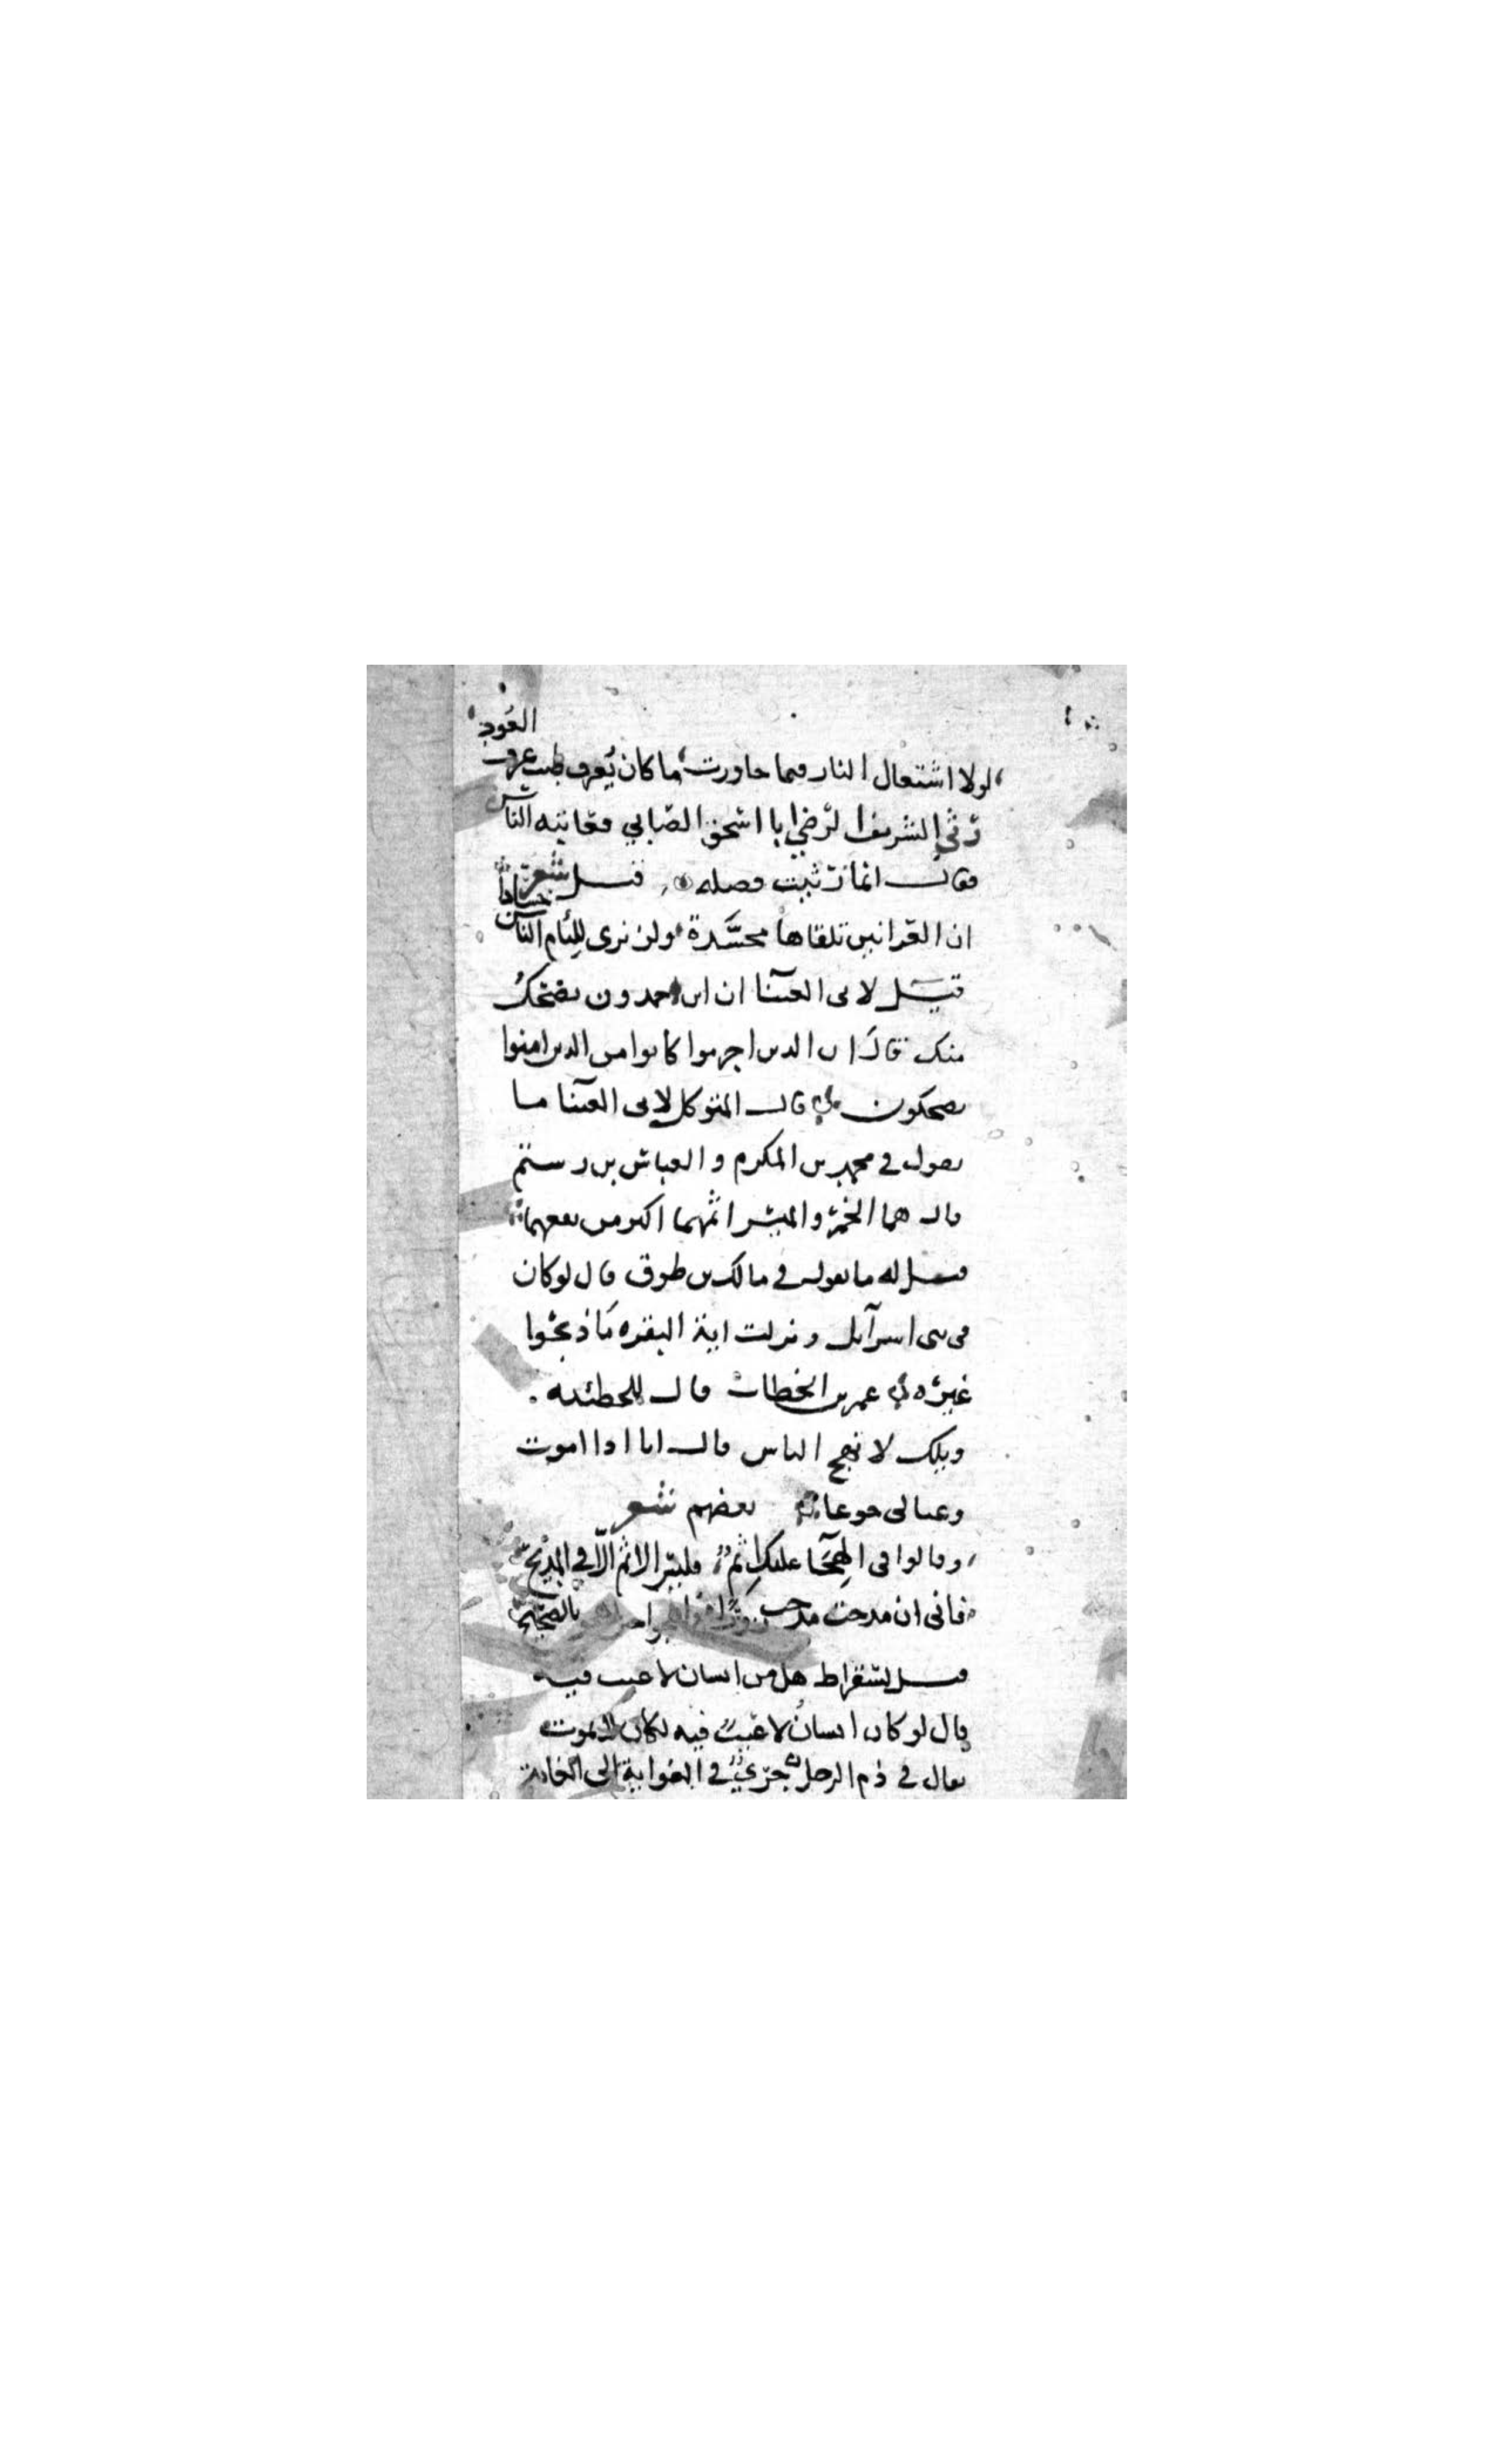 العود
لولا اشتعال النار فيما جاورت ما كان يُعرف طيب عرف
رثى الشريف الرضي ابا اسحق الصابي فعاتبه الناس
فقال انما رثيت فضله قيل شعر
ان العرانين تلقاها محسَّدة ولن ترى للئام الناس حسادا
قيل لابى العينا ان ابن حمدون يضحك
منك فقال ان الدين اجرموا كانوا من الدين امنوا
يضحكون قال المتوكل لابى العينا ما
تقول في محمد بن المكرم والعباس بن رستم
قال هما الخمر والميسر اثمهما اكبر من نفعهما
قيل له ما تقول في مالك بن طوق قال لو كان
في بنى اسرآيل ونزلت اية البقره ما ذبحوا
غيره عمر بن الخطاب قال للحطئيه
ويلك لا تهج الناس قال اذا اموت
وعيالى جوعا بعضهم شعر
وقالوا فى الهجآ عليك اثم فليس الاثم الّا في المديح
فانى ان مدحت مدحت بالصحيح
قيل لسقراط هل من انسان لا عيب فيه
قال لو كان انسان لا عيب فيه لكان لا يموت
يقال في ذم الرجل جرى في الغواية الى الغاية